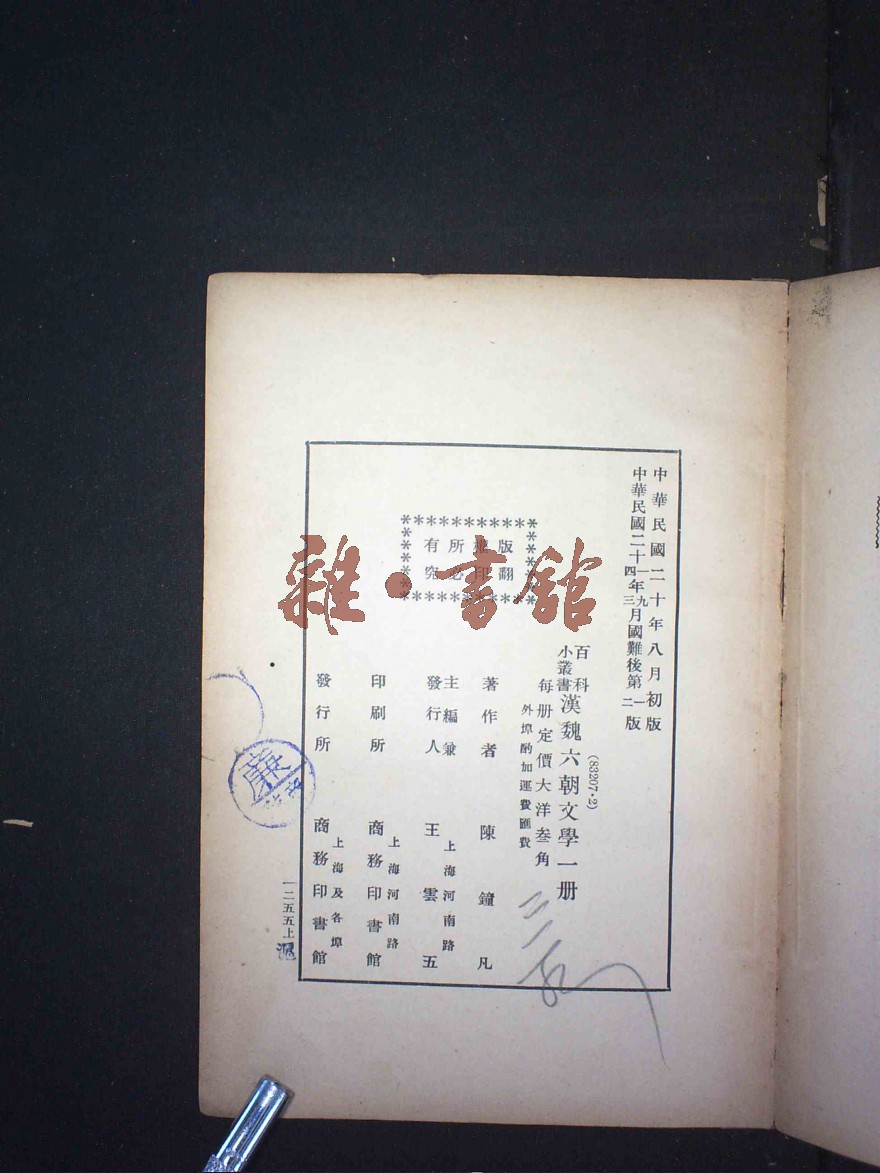 中華民國二十年八月初版
中華民國二十一四年九三月國難後第一二版
(83207·2)
百科
小叢書
漢魏六朝文學一册
每册定價大洋叁角
外埠酌加運費匯費
版權所有
翻印必究
著作者 陳鐘凡
主編兼 上海河南路
發行人 王雲五
上海河南路
印刷所 商務印書館
上海及各埠
發行所 商務印書館
一二五五上
雜·書館